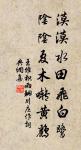 漠漠水田飛白鷺
陰陰夏木囀黃鸝
王維積雨輞川庄作詩詞